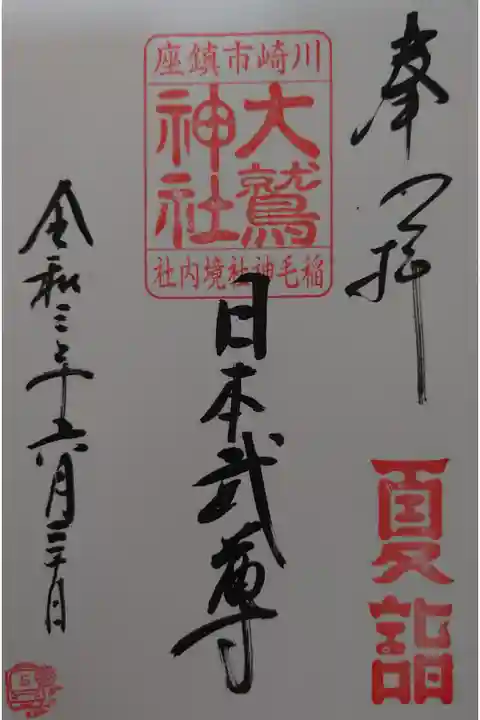 奉拝
夏詣
川崎市鎮座
大鷲
神社
稲毛神社境内社
日本武尊
令和三年六月三十日